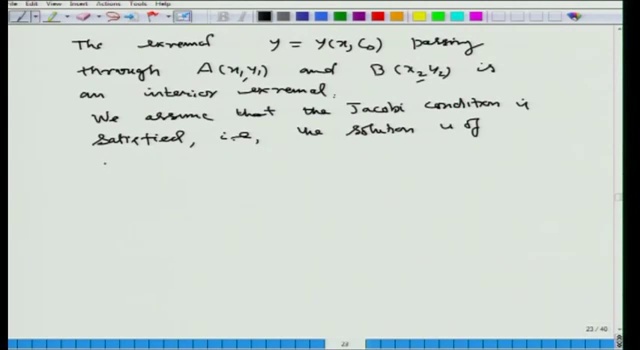 File Edit View Insert Actions Tools Help
The extremal y = y(x, C₀) passing
through A(x₁, y₁) and B(x₂, y₂) is
an interior extremal.
We assume that the Jacobi condition is
satisfied, i.e, the solution u of
23 / 40
23